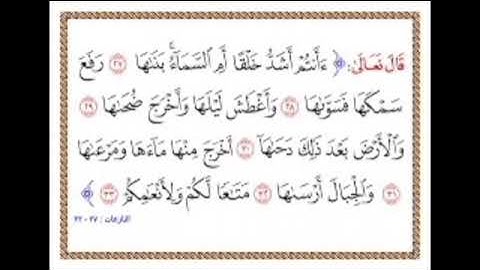 قَالَ تَعَالَى: ﴿ ءَأَنتُمْ أَشَدُّ خَلْقًا أَمِ السَّمَاءُ ۚ بَنَاهَا ۝٢٧ رَفَعَ
سَمْكَهَا فَسَوَّاهَا ۝٢٨ وَأَغْطَشَ لَيْلَهَا وَأَخْرَجَ ضُحَاهَا ۝٢٩
وَالْأَرْضَ بَعْدَ ذَٰلِكَ دَحَاهَا ۝٣٠ أَخْرَجَ مِنْهَا مَاءَهَا وَمَرْعَاهَا
۝٣١ وَالْجِبَالَ أَرْسَاهَا ۝٣٢ مَتَاعًا لَّكُمْ وَلِأَنْعَامِكُمْ ۝٣٣ ﴾
النازعات : ٢٧ - ٣٣